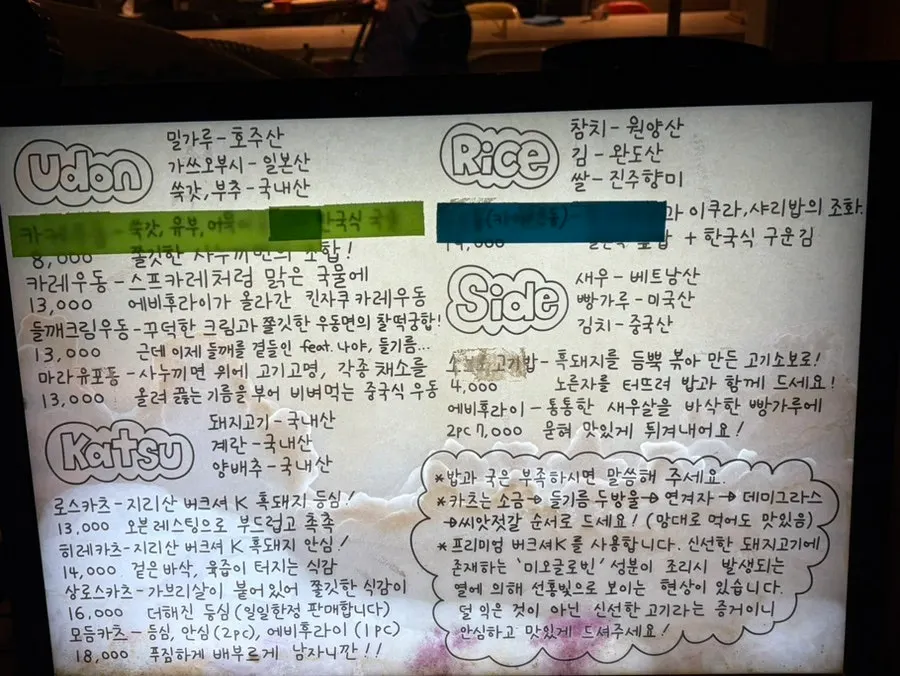 Udon
밀가루 - 호주산
가쓰오부시 - 일본산
쑥갓, 부추 - 국내산
쑥갓, 유부, 어묵 한국식
8,000 쫄깃한 사누끼면의 조합!
카레우동 - 스프카레처럼 맑은 국물에
13,000 에비후라이가 올라간 킨자쿠 카레우동
들깨크림우동 - 꾸덕한 크림과 쫄깃한 우동면의 찰떡궁합!
13,000 근데 이제 들깨를 곁들인 feat. 나야, 들기름...
마라유포동 - 사누끼면 위에 고기고명, 각종 채소를
13,000 올려 끓는 기름을 부어 비벼먹는 중국식 우동
Katsu
돼지고기 - 국내산
계란 - 국내산
양배추 - 국내산
로스카츠 - 지리산 버크셔 K 흑돼지 등심!
13,000 오븐 레스팅으로 부드럽고 촉촉
히레카츠 - 지리산 버크셔 K 흑돼지 안심!
14,000 겉은 바삭, 육즙이 터지는 식감
상로스카츠 - 가브리살이 붙어있어 쫄깃한 식감이
16,000 더해진 등심 (일일한정 판매합니다)
모듬카츠 - 등심, 안심 (2pc), 에비후라이 (1pc)
18,000 푸짐하게 배부르게 남자니깐!!
Rice
참치 - 원양산
김 - 완도산
쌀 - 진주향미
과 이쿠라, 샤리밥의 조화.
+ 한국식 구운김
Side
새우 - 베트남산
빵가루 - 미국산
김치 - 중국산
고기밥 - 흑돼지를 듬뿍 볶아 만든 고기소보로!
4,000 노른자를 터뜨려 밥과 함께 드세요!
에비후라이 - 통통한 새우살을 바삭한 빵가루에
2pc 7,000 묻혀 맛있게 튀겨내어요!
*밥과 국은 부족하시면 말씀해 주세요.
*카츠는 소금 → 들기름 두방울 → 연겨자 → 데미그라스
→ 씨앗젓갈 순서로 드세요! (맘대로 먹어도 맛있음)
*프리미엄 버크셔K를 사용합니다. 신선한 돼지고기에
존재하는 '미오글로빈' 성분이 조리시 발생되는
열에 의해 선홍빛으로 보이는 현상이 있습니다.
덜 익은 것이 아닌 신선한 고기라는 증거이니
안심하고 맛있게 드셔주세요!